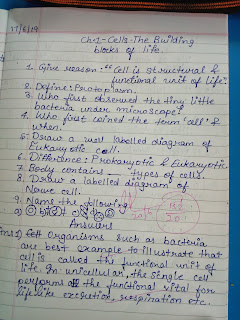 17/6/19
Ch-1- Cells- The Building
blocks of life.
1. Give reason:- "Cell is structural &
functional unit of life".
2. Define: Protoplasm.
3. Who first observed the tiny little
bacteria under microscope?
4. Who first coined the term 'cell' &
when.
5. Draw a well labelled diagram of
Eukaryotic cell.
6. Difference: Prokaryotic & Eukaryotic.
7. Body contains __ types of cells.
8. Draw a labelled diagram of
Nerve cell.
9. Name the following
Answers
1) Cell Organisms such as bacteria
are best example to illustrate that
cell is called the functional unit of
life. In unicellular, the single cell
performs all the functional vital for
life like excretion, respiration etc.